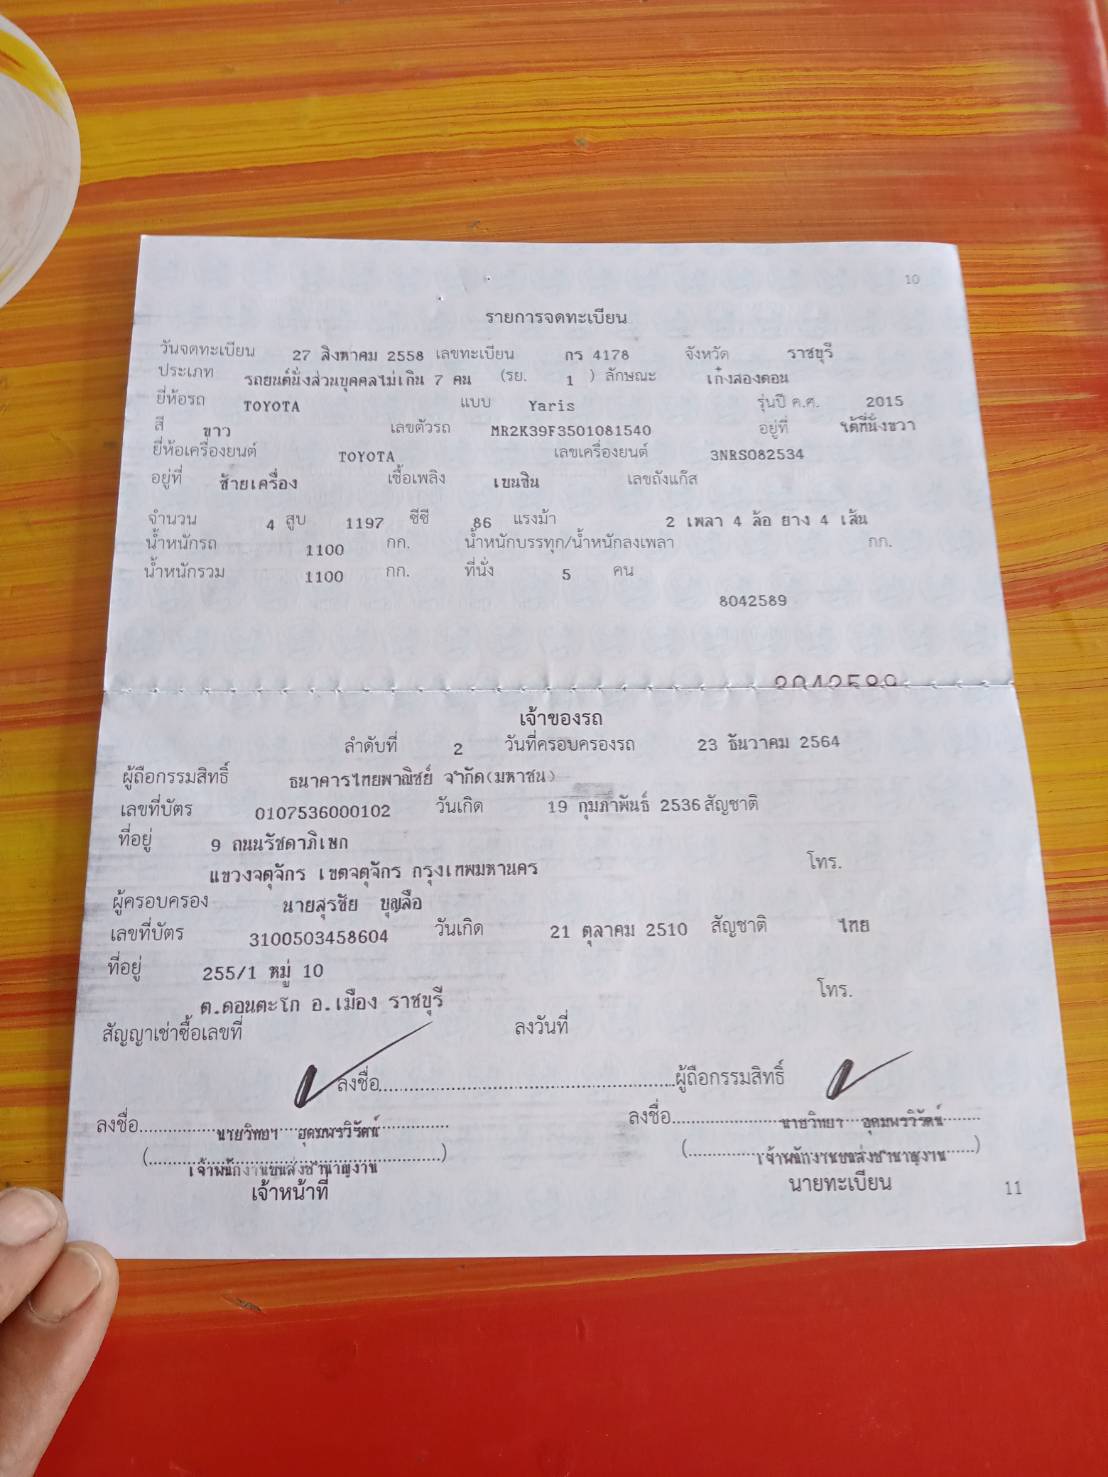 10
รายการจดทะเบียน
วันจดทะเบียน 27 สิงหาคม 2558 เลขทะเบียน กร 4178 จังหวัด ราชบุรี
ประเภท รถยนต์นั่งส่วนบุคคลไม่เกิน 7 คน (รย. 1 ) ลักษณะ เก๋งสองตอน
ยี่ห้อรถ TOYOTA แบบ Yaris รุ่นปี ค.ศ. 2015
สี ขาว เลขตัวรถ MR2K39F3501081540 อยู่ที่ ใต้ที่นั่งขวา
ยี่ห้อเครื่องยนต์ TOYOTA เลขเครื่องยนต์ 3NRS082534
อยู่ที่ ซ้ายเครื่อง เชื้อเพลิง เบนซิน เลขถังแก๊ส
จำนวน 4 สูบ 1197 ซีซี 86 แรงม้า 2 เพลา 4 ล้อ ยาง 4 เส้น
น้ำหนักรถ 1100 กก. น้ำหนักบรรทุก/น้ำหนักลงเพลา กก.
น้ำหนักรวม 1100 กก. ที่นั่ง 5 คน
8042589
8042589
เจ้าของรถ
ลำดับที่ 2 วันที่ครอบครองรถ 23 ธันวาคม 2564
ผู้ถือกรรมสิทธิ์ ธนาคารไทยพาณิชย์ จำกัด(มหาชน)
เลขที่บัตร 0107536000102 วันเกิด 19 กุมภาพันธ์ 2536 สัญชาติ
ที่อยู่ 9 ถนนรัชดาภิเษก
แขวงจตุจักร เขตจตุจักร กรุงเทพมหานคร โทร.
ผู้ครอบครอง นายสุรชัย บุญลือ
เลขที่บัตร 3100503458604 วันเกิด 21 ตุลาคม 2510 สัญชาติ ไทย
ที่อยู่ 255/1 หมู่ 10
ต.ดอนตะโก อ.เมือง ราชบุรี โทร.
สัญญาเช่าซื้อเลขที่ ลงวันที่
ลงชื่อ ผู้ถือกรรมสิทธิ์
ลงชื่อ นายวิทยา อุดมพรวิรัตน์ ลงชื่อ นายวิทยา อุดมพรวิรัตน์
(เจ้าพนักงานขนส่งชำนาญงาน) (เจ้าพนักงานขนส่งชำนาญงาน)
เจ้าหน้าที่ นายทะเบียน
11